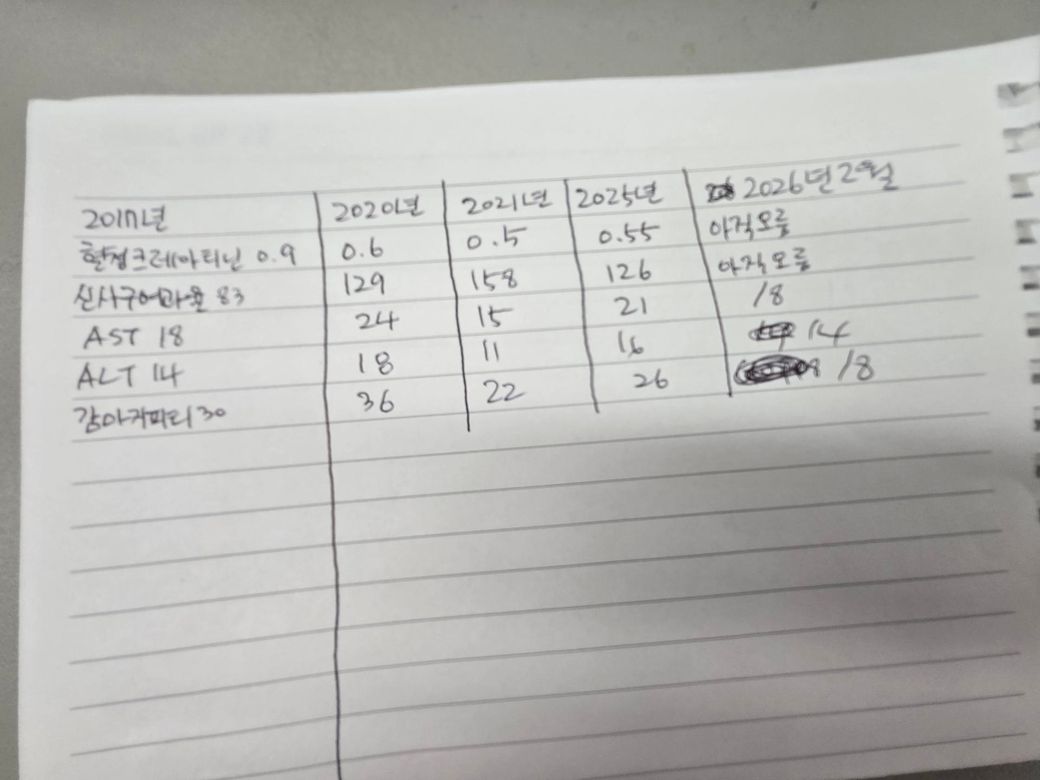 2017년 2020년 2021년 2025년 2026년 2월
혈청크레아티닌 0.9 0.6 0.5 0.55 아직모름
신사구여과율 83 129 158 126 아직모름
AST 18 24 15 21 18
ALT 14 18 11 16 14
감마지피티 30 36 22 26 18